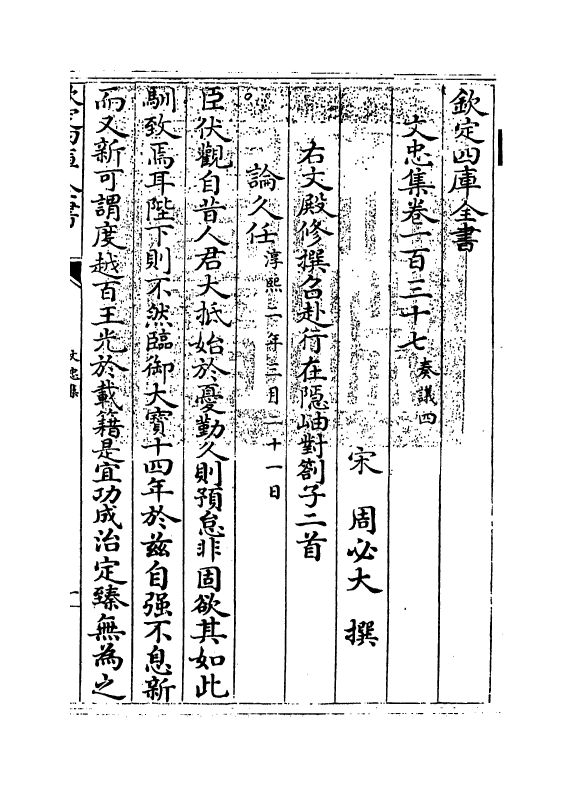 欽定四庫全書
文忠集卷一百三十七 奏議四
宋 周必大 撰
右文殿修撰召赴行在隠岫對劄子二首
論久任 淳熙二年三月二十一日
臣伏觀自昔人君大抵始於憂勤久則預怠非固欲其如此
馴致焉耳陛下則不然臨御大寳十四年於兹自强不息新
而又新可謂度越百王光於載籍是宜功成治定臻無為之
文忠集